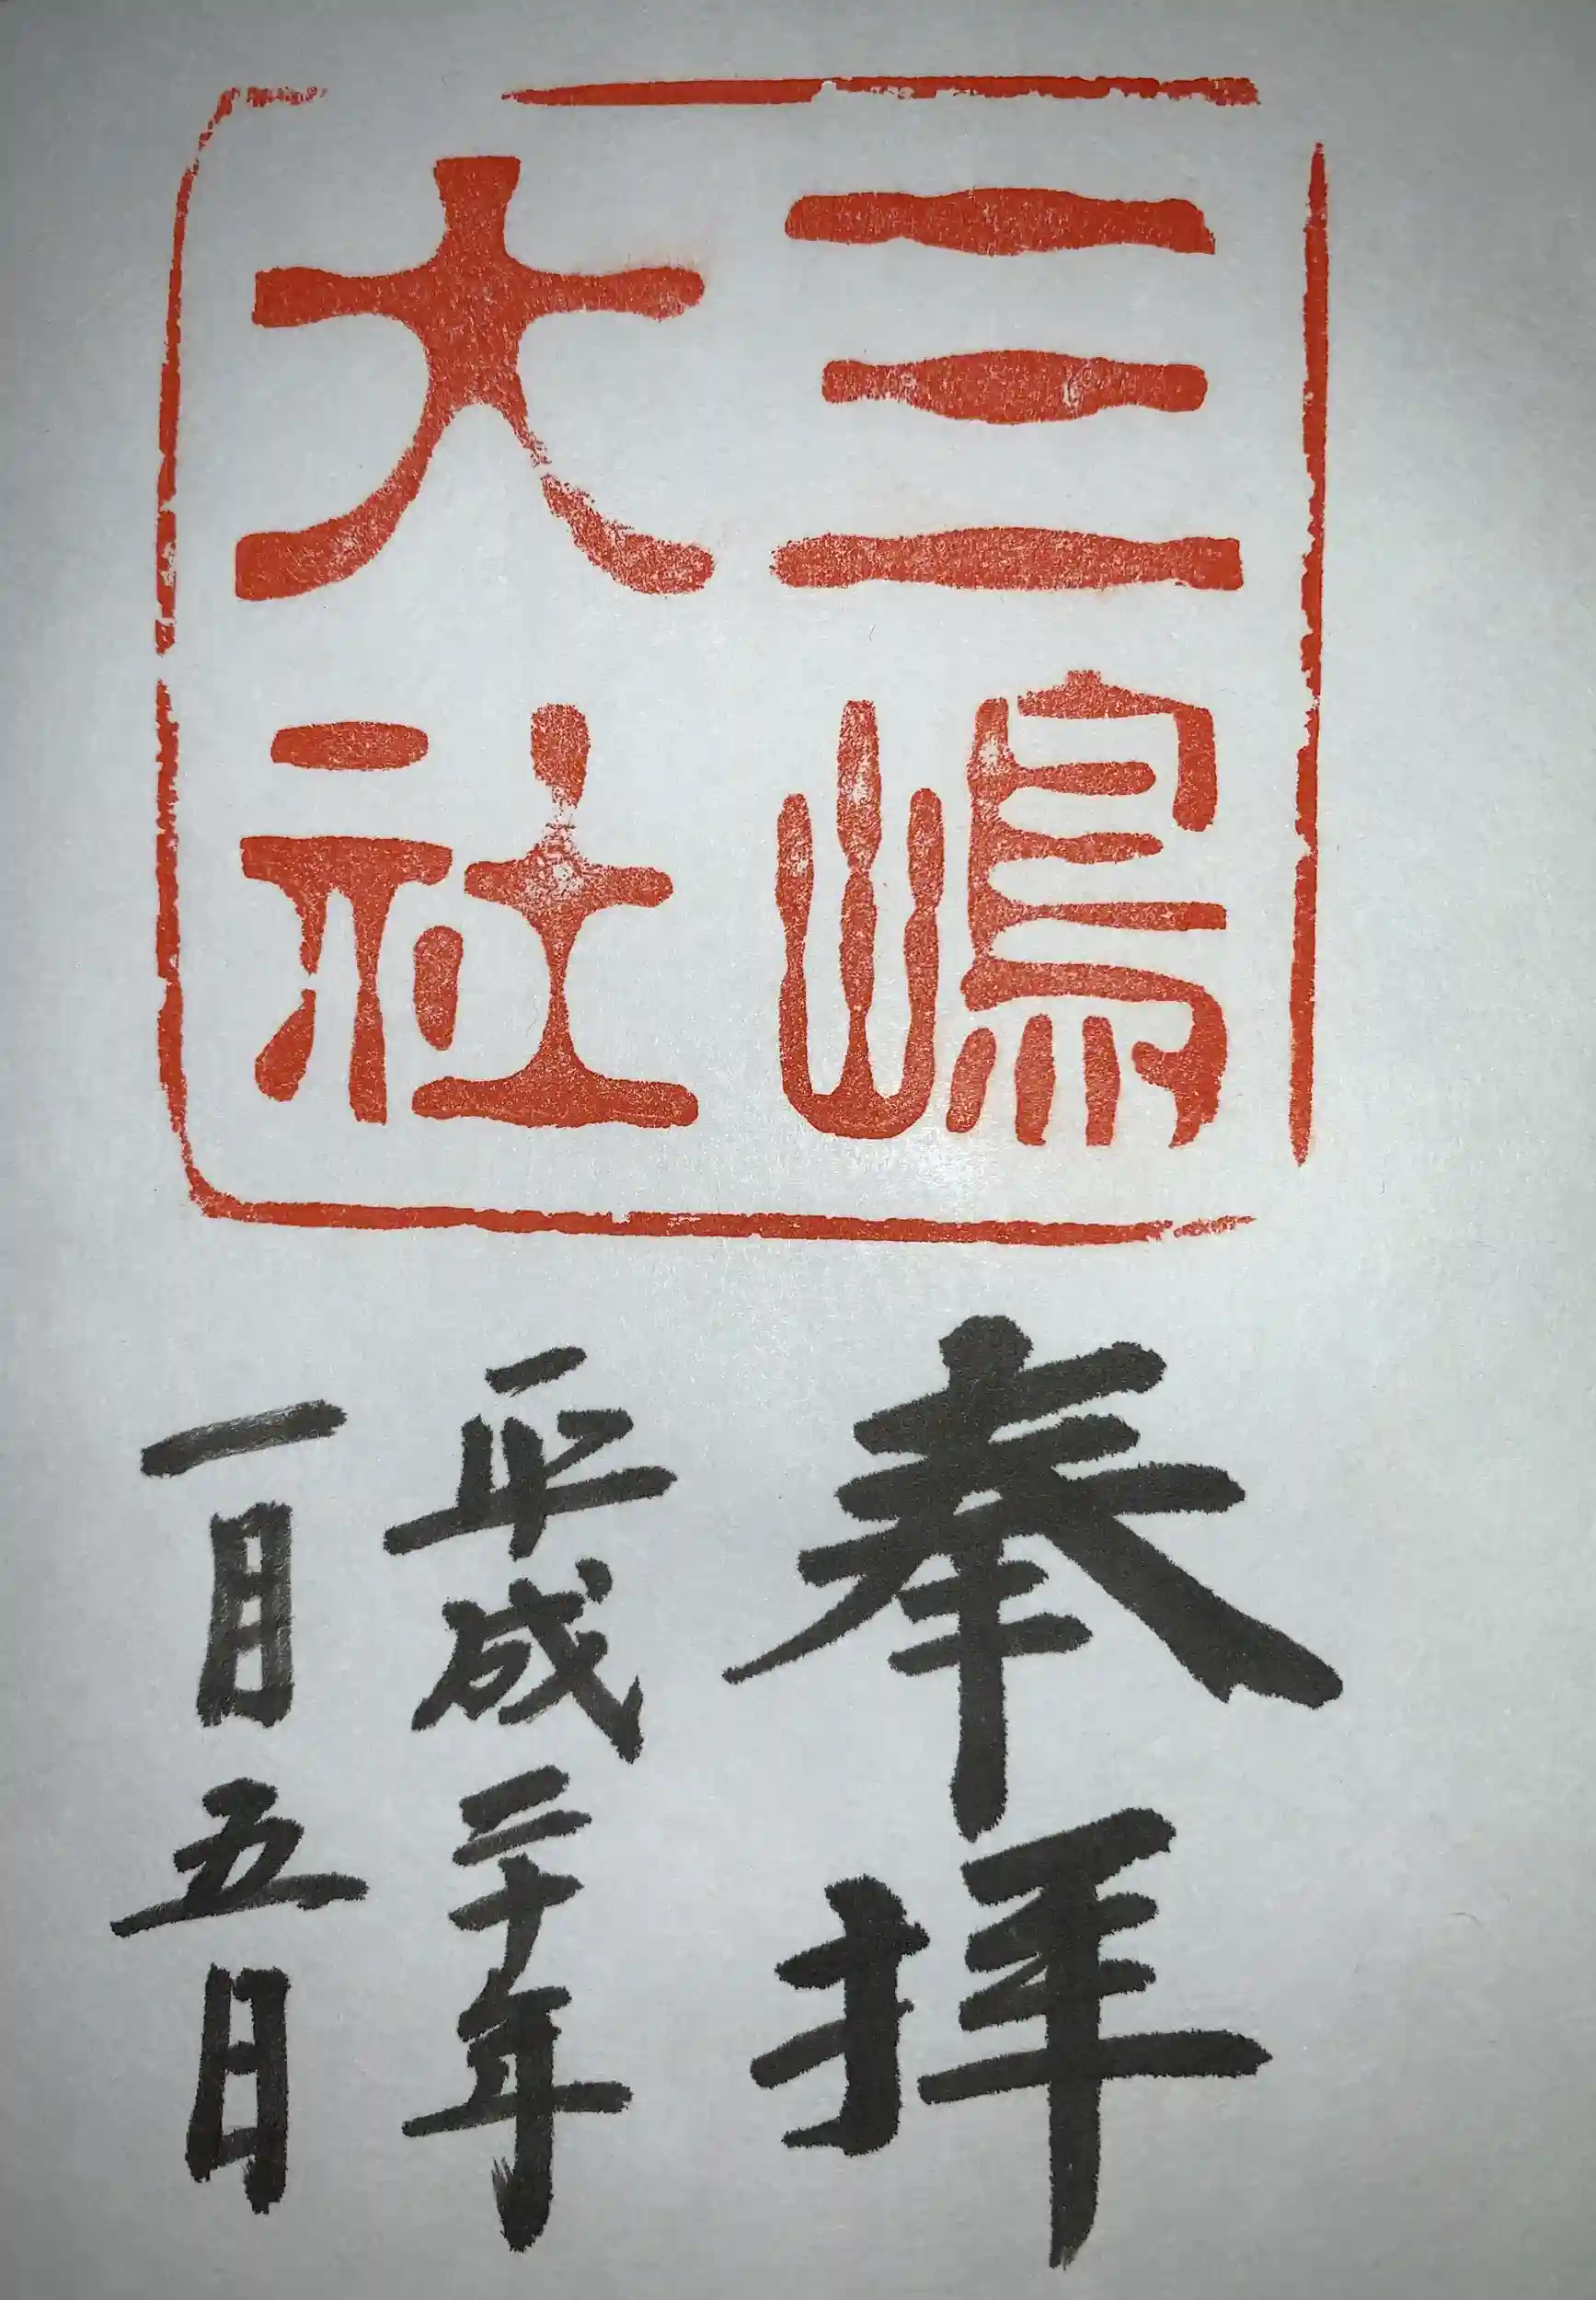 三嶋
大社
奉拝
平成二十年
一月五日